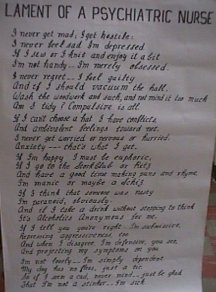 LAMENT OF A PSYCHIATRIC NURSE
I never get mad, I get hostile;
I never feel sad, I'm depressed.
If I sew or I knit and enjoy it a bit
I'm not handy - I'm merely obsessed.
I never regret - I feel guilty
And if I should vacuum the hall,
Wash the woodwork and such, and not mind it too much
Am I tidy? Compulsive is all.
If I can't choose a hat I have conflicts,
And ambivalent feelings toward net.
I never get worried or nervous or hurried,
Anxiety - that's what I get.
If I'm happy I must be euphoric,
If I go to the
And have a good time making puns and rhyme
I'm manic or maybe a
If I think that someone was nasty
I'm paranoid, obviously.
And if I take a drink without stopping to think
It's Alcoholics Anonymous for me.
If I tell you you're right - I'm submissive,
Repressing aggressiveness too
And when I disagree I'm defensive, you see,
And projecting my symptoms on you.
I'm not lonely - I'm simply dependent
My dog has no fleas, just a tic
So if I seem a cad, never mind - just be glad
That I'm not a stinker - I'm sick